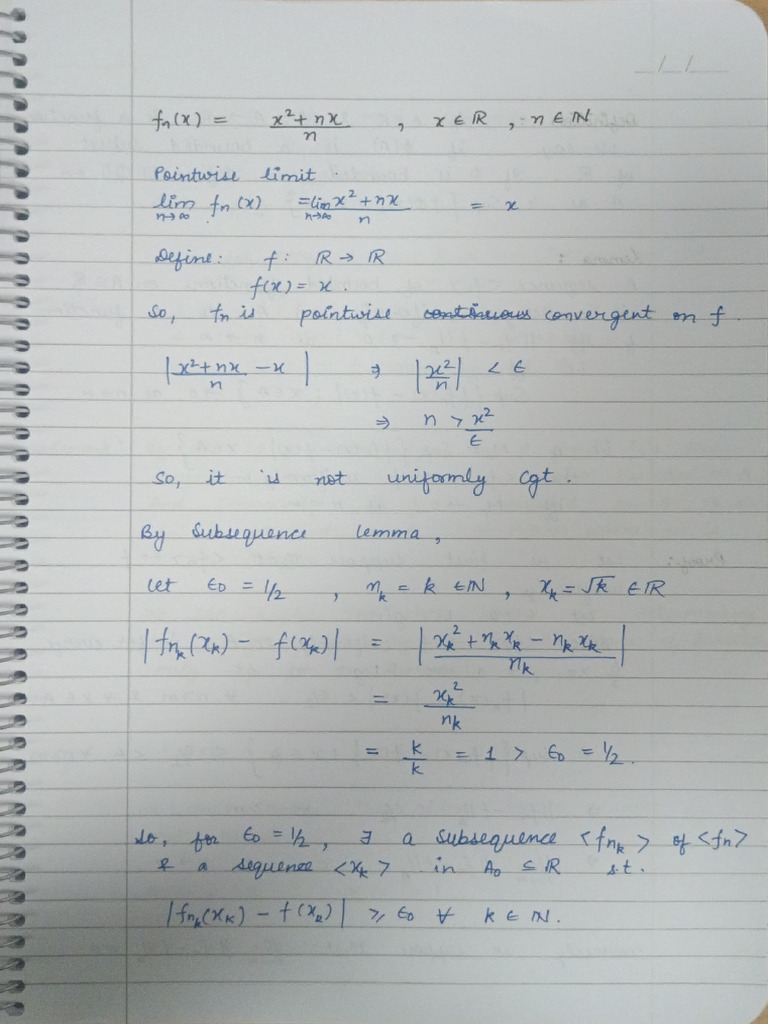 _/_/_
fn(x) = x²+nx/n , x ∈ ℝ , n ∈ ℕ
Pointwise limit .
lim n→∞ fn(x) = lim n→∞ x²+nx/n = x
Define: f: ℝ → ℝ
f(x) = x .
So, fn is pointwise continuous convergent on f .
|x²+nx/n - x| ⇒ |x²/n| < ϵ
⇒ n > x²/ϵ
So, it is not uniformly cgt .
By Subsequence lemma ,
Let ϵ0 = 1/2 , nk = k ∈ ℕ , xk = √k ∈ ℝ
|fnk(xk) - f(xk)| = |xk² + nk xk - nk xk/nk|
= xk²/nk
= k/k = 1 > ϵ0 = 1/2 .
So, for ϵ0 = 1/2 , ∃ a subsequence <fnk> of <fn>
& a sequence <xk> in A0 ⊆ ℝ s.t.
|fnk(xk) - f(xk)| ≥ ϵ0 ∀ k ∈ ℕ .